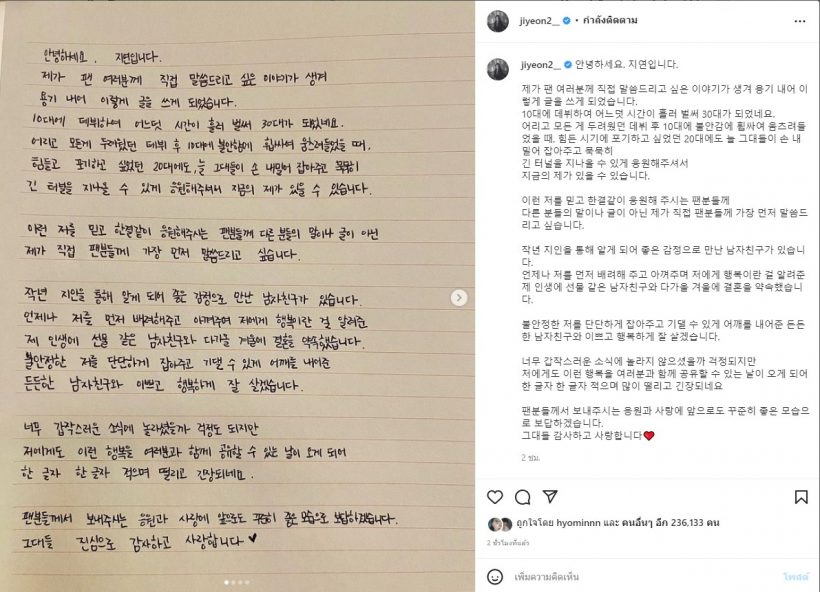 안녕하세요. 지연입니다.
제가 팬 여러분께 직접 말씀드리고 싶은 이야기가 생겨
용기 내어 이렇게 글을 쓰게 되었습니다.
10대에 데뷔하여 어느덧 시간이 흘러 벌써 30대가 되었네요.
어리고 모든게 두려웠던 데뷔 후 10대에 불안함에 휩싸여 움츠러들었을 때,
힘들고 포기하고 싶었던 20대에도, 늘 그대들이 손 내밀어 잡아주고 묵묵히
긴 터널을 지나올 수 있게 응원해주셔서 지금의 제가 있을 수 있습니다.
이런 저를 믿고 한결같이 응원해주시는 팬분들께 다른 분들의 말이나 글이 아닌
제가 직접 팬분들께 가장 먼저 말씀드리고 싶습니다.
작년 지인을 통해 알게 되어 좋은 감정으로 만난 남자친구가 있습니다.
언제나 저를 먼저 배려해주고 아껴주며 저에게 행복이란 걸 알려준
제 인생에 선물 같은 남자친구와 다가올 겨울에 결혼을 약속했습니다.
불안정한 저를 단단하게 잡아주고 기댈 수 있게 어깨를 내어준
든든한 남자친구와 이쁘고 행복하게 잘 살겠습니다.
너무 갑작스러운 소식에 놀라셨을까 걱정도 되지만
저에게도 이런 행복을 여러분과 함께 공유할 수 있는 날이 오게 되어
한 글자 한 글자 적으며 떨리고 긴장되네요.
팬분들께서 보내주시는 응원과 사랑에 앞으로도 꾸준히 좋은 모습으로 보답하겠습니다.
그대들 진심으로 감사하고 사랑합니다♥
jiyeon2__ • กำลังติดตาม
jiyeon2__ 안녕하세요. 지연입니다.
제가 팬 여러분께 직접 말씀드리고 싶은 이야기가 생겨 용기 내어 이
렇게 글을 쓰게 되었습니다.
10대에 데뷔하여 어느덧 시간이 흘러 벌써 30대가 되었네요.
어리고 모든 게 두려웠던 데뷔 후 10대에 불안감에 휩싸여 움츠러들
었을 때, 힘든 시기에 포기하고 싶었던 20대에도 늘 그대들이 손 내
밀어 잡아주고 묵묵히
긴 터널을 지나올 수 있게 응원해주셔서
지금의 제가 있을 수 있습니다.
이런 저를 믿고 한결같이 응원해 주시는 팬분들께
다른 분들의 말이나 글이 아닌 제가 직접 팬분들께 가장 먼저 말씀드
리고 싶습니다.
작년 지인을 통해 알게 되어 좋은 감정으로 만난 남자친구가 있습니
다.
언제나 저를 먼저 배려해 주고 아껴주며 저에게 행복이란 걸 알려준
제 인생에 선물 같은 남자친구와 다가올 겨울에 결혼을 약속했습니
다.
불안정한 저를 단단하게 잡아주고 기댈 수 있게 어깨를 내어준 든든
한 남자친구와 이쁘고 행복하게 잘 살겠습니다.
너무 갑작스러운 소식에 놀라지 않으셨을까 걱정되지만
저에게도 이런 행복을 여러분과 함께 공유할 수 있는 날이 오게 되어
한 글자 한 글자 적으며 많이 떨리고 긴장되네요
팬분들께서 보내주시는 응원과 사랑에 앞으로도 꾸준히 좋은 모습으
로 보답하겠습니다.
그대들 감사하고 사랑합니다❤️
2 ชม.
ถูกใจโดย hyominnn และ คนอื่นๆ อีก 236,133 คน
2 ชั่วโมงที่แล้ว
เพิ่มความคิดเห็น
โพสต์